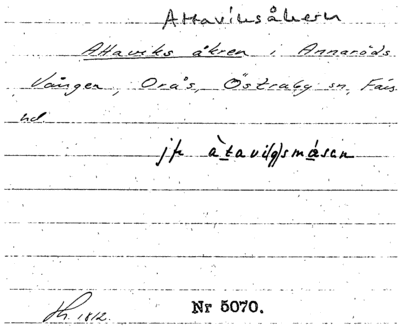 Attaviksåkern
Attaviks åkren i Annaröds
Vången, Orås, Östraby sn, Färs
hd.
jfr àtavi(g)småsen
1812.
Nr 5070.